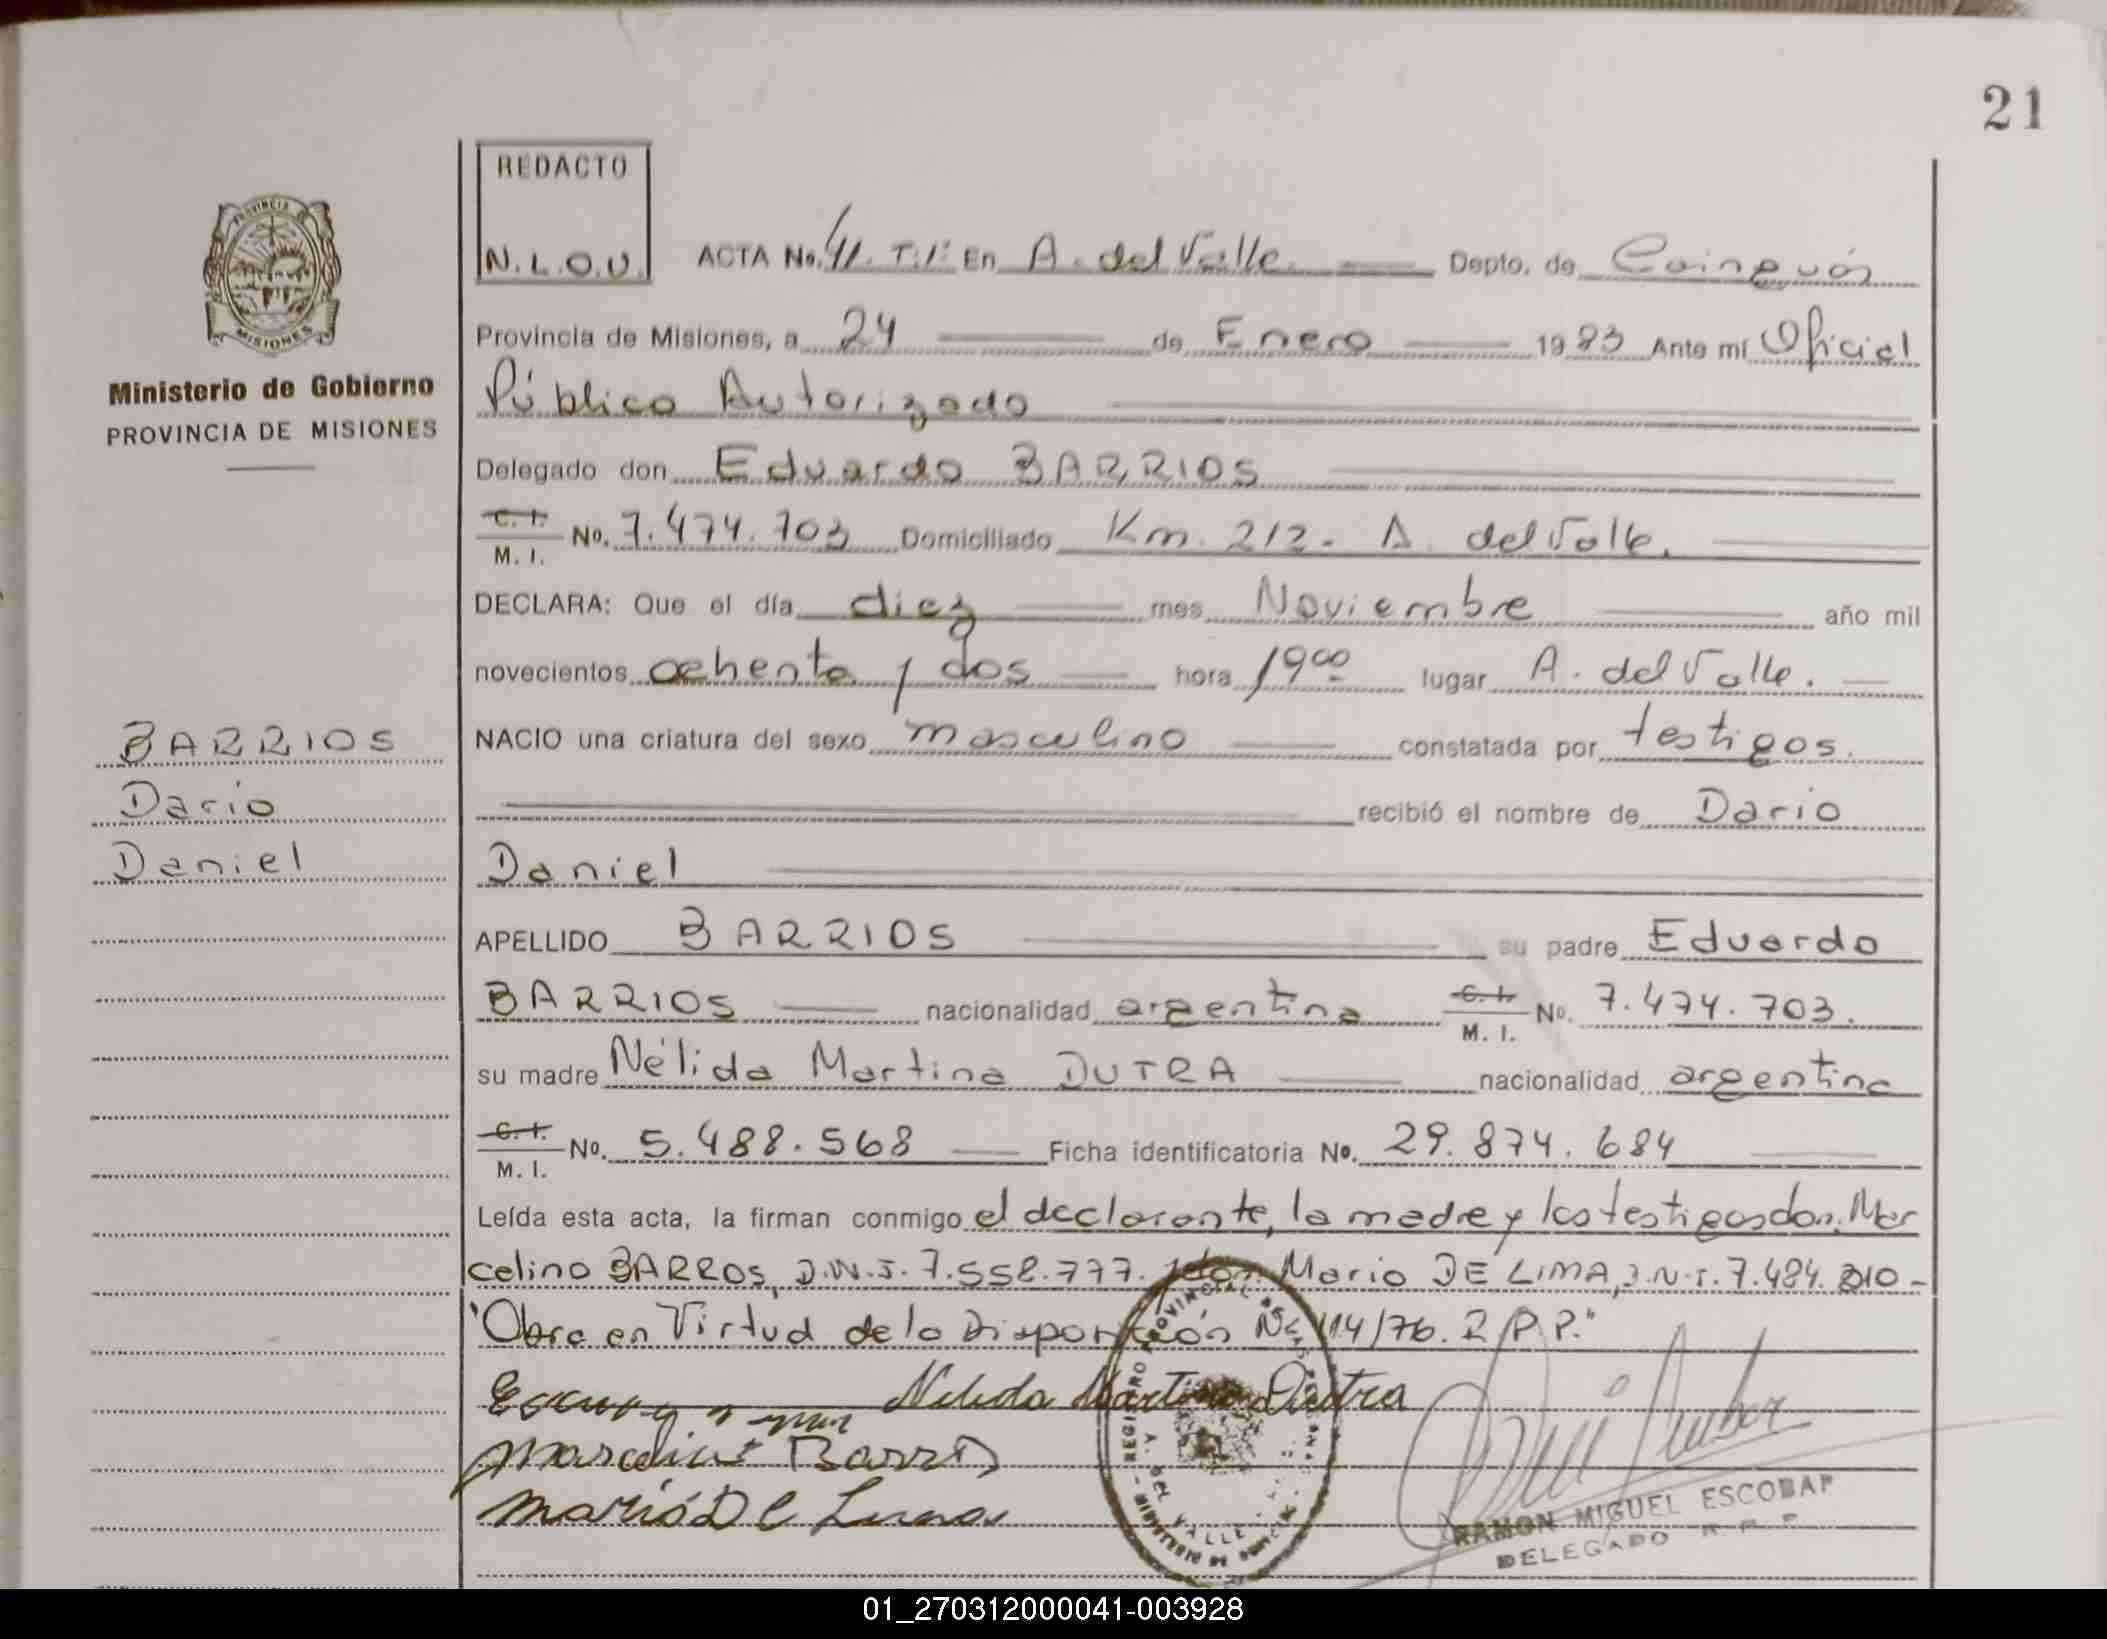 21
REDACTO
N.L.O.U.
ACTA No. 41. T.1º En A. del Valle Depto. de Cainguás
Provincia de Misiones, a 24 de Enero 1983 Ante mí Oficial
Público Autorizado
Delegado don Eduardo BARRIOS
C. I. M. I. No. 7.474.703 Domiciliado Km. 212- A. del Valle.
DECLARA: Que el día diez mes Noviembre año mil
novecientos ochenta y dos hora 19ºº lugar A. del Valle.
NACIO una criatura del sexo masculino constatada por testigos.
recibió el nombre de Dario
Daniel
APELLIDO BARRIOS su padre Eduardo
BARRIOS nacionalidad argentina C. I. M. I. No. 7.474.703.
su madre Nélida Martina DUTRA nacionalidad argentina
C. I. M. I. No. 5.488.568 Ficha identificatoria No. 29.874.684
Leída esta acta, la firman conmigo el declarante, la madre y los testigos don. Mar
celino BARROS, D.N.I. 7.558.777. y don Mario DE LIMA, D.N.I. 7.484.210-
"Obra en Virtud de la Disposición Nº 114/76. R.P.P."
Nelida Martina Dutra
Marcelino Barros
Mario De Lima
RAMON MIGUEL ESCOBAR
DELEGADO R.P.P.
REGISTRO PROVINCIAL DE LAS PERSONAS
A. DEL VALLE
PROVINCIA DE
MISIONES
Ministerio de Gobierno
PROVINCIA DE MISIONES
BARRIOS
Dario
Daniel
01_270312000041-003928